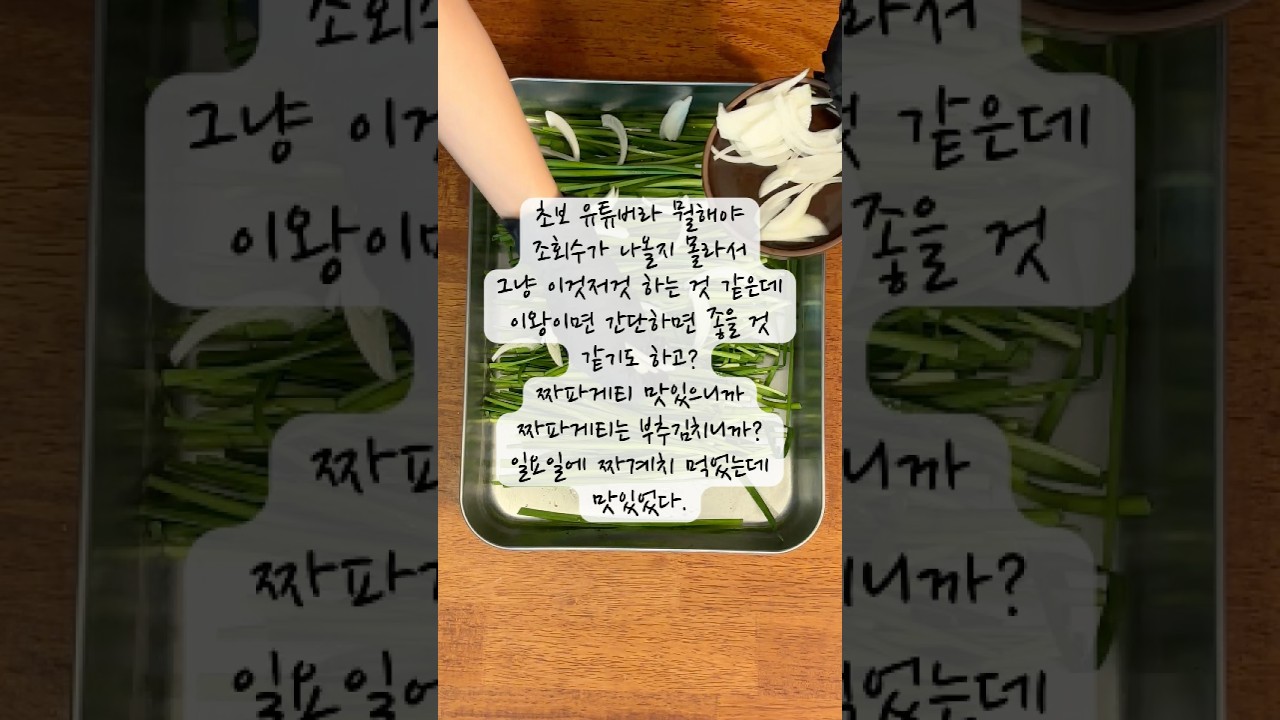 초보 유튜버라 뭘해야
조회수가 나올지 몰라서
그냥 이것저것 하는 것 같은데
이왕이면 간단하면 좋을 것
같기도 하고?
짜파게티 맛있으니까
짜파게티는 부추김치니까?
일요일에 짜계치 먹었는데
맛있었다.